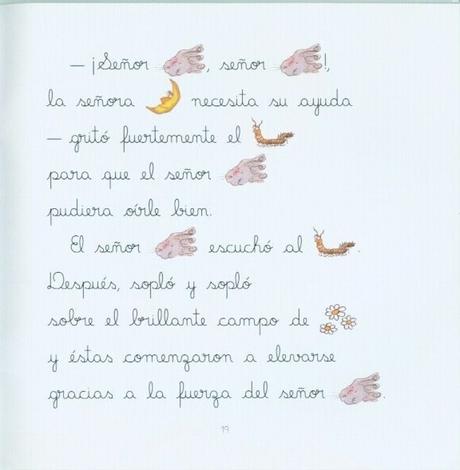 — ¡Señor , señor !,
la señora necesita su ayuda
— gritó fuertemente el
para que el señor
pudiera oírle bien.
El señor escuchó al .
Después, sopló y sopló
sobre el brillante campo de
y éstas comenzaron a elevarse
gracias a la fuerza del señor .
19